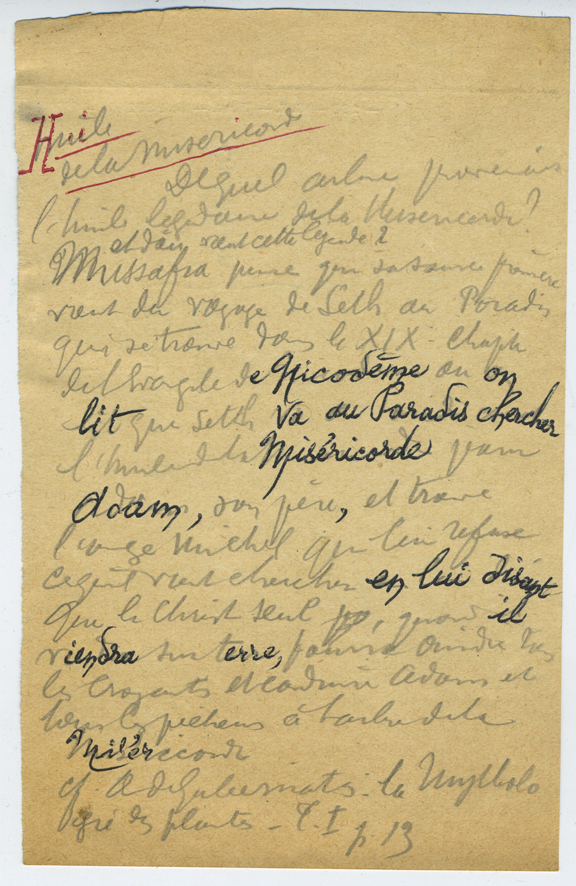 Huile
de la Miséricorde
De quel arbre provenait
l'huile légendaire de la Miséricorde?
et d'où vient cette légende?
Mussafia pense que sa source première
vient du voyage de Seth au Paradis
qui se trouve dans le XIX Chap
de l'Evangile de Nicodème où on
lit que Seth va au Paradis chercher
l'huile de la Miséricorde pour
Adam, son père, et trouve
l'ange Michel qui lui refuse
ce qu'il vient chercher en lui disant
que le Christ seul, quand il
viendra sur terre, pourra oindre tous
les Croyants et conduire Adam et
tous les pécheurs à l'arbre de la
Miséricorde
cf. A de Gubernatis - la Mytholo
gie des plantes - T. I p. 13